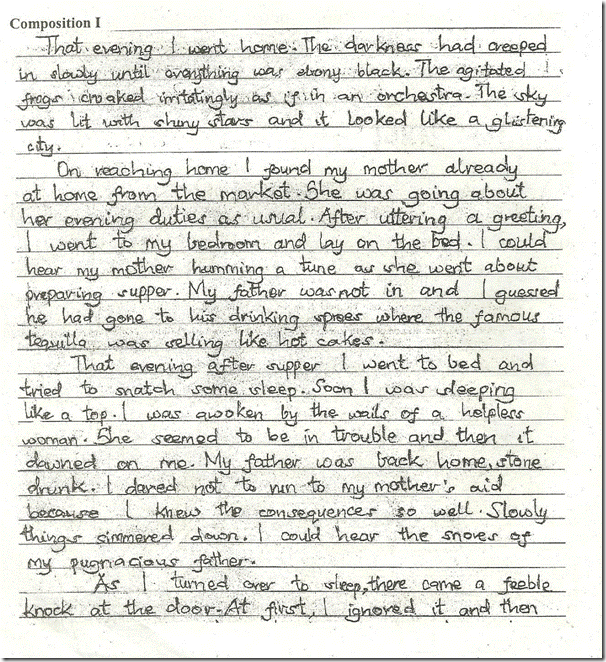 Composition I
That evening I went home. The darkness had creeped
in slowly until everything was ebony black. The agitated
frogs croaked irritatingly as if in an orchestra. The sky
was lit with shiny stars and it looked like a glistening
city.
On reaching home I found my mother already
at home from the market. She was going about
her evening duties as usual. After uttering a greeting,
I went to my bedroom and lay on the bed. I could
hear my mother humming a tune as she went about
preparing supper. My father was not in and I guessed
he had gone to his drinking sprees where the famous
tequilla was selling like hot cakes.
That evening after supper I went to bed and
tried to snatch some sleep. Soon I was sleeping
like a top. I was awoken by the wails of a helpless
woman. She seemed to be in trouble and then it
dawned on me. My father was back home, stone
drunk. I dared not to run to my mother's aid
because I knew the consequences so well. Slowly
things simmered down. I could hear the snores of
my pugnacious father.
As I turned over to sleep, there came a feeble
knock at the door. At first, I ignored it and then